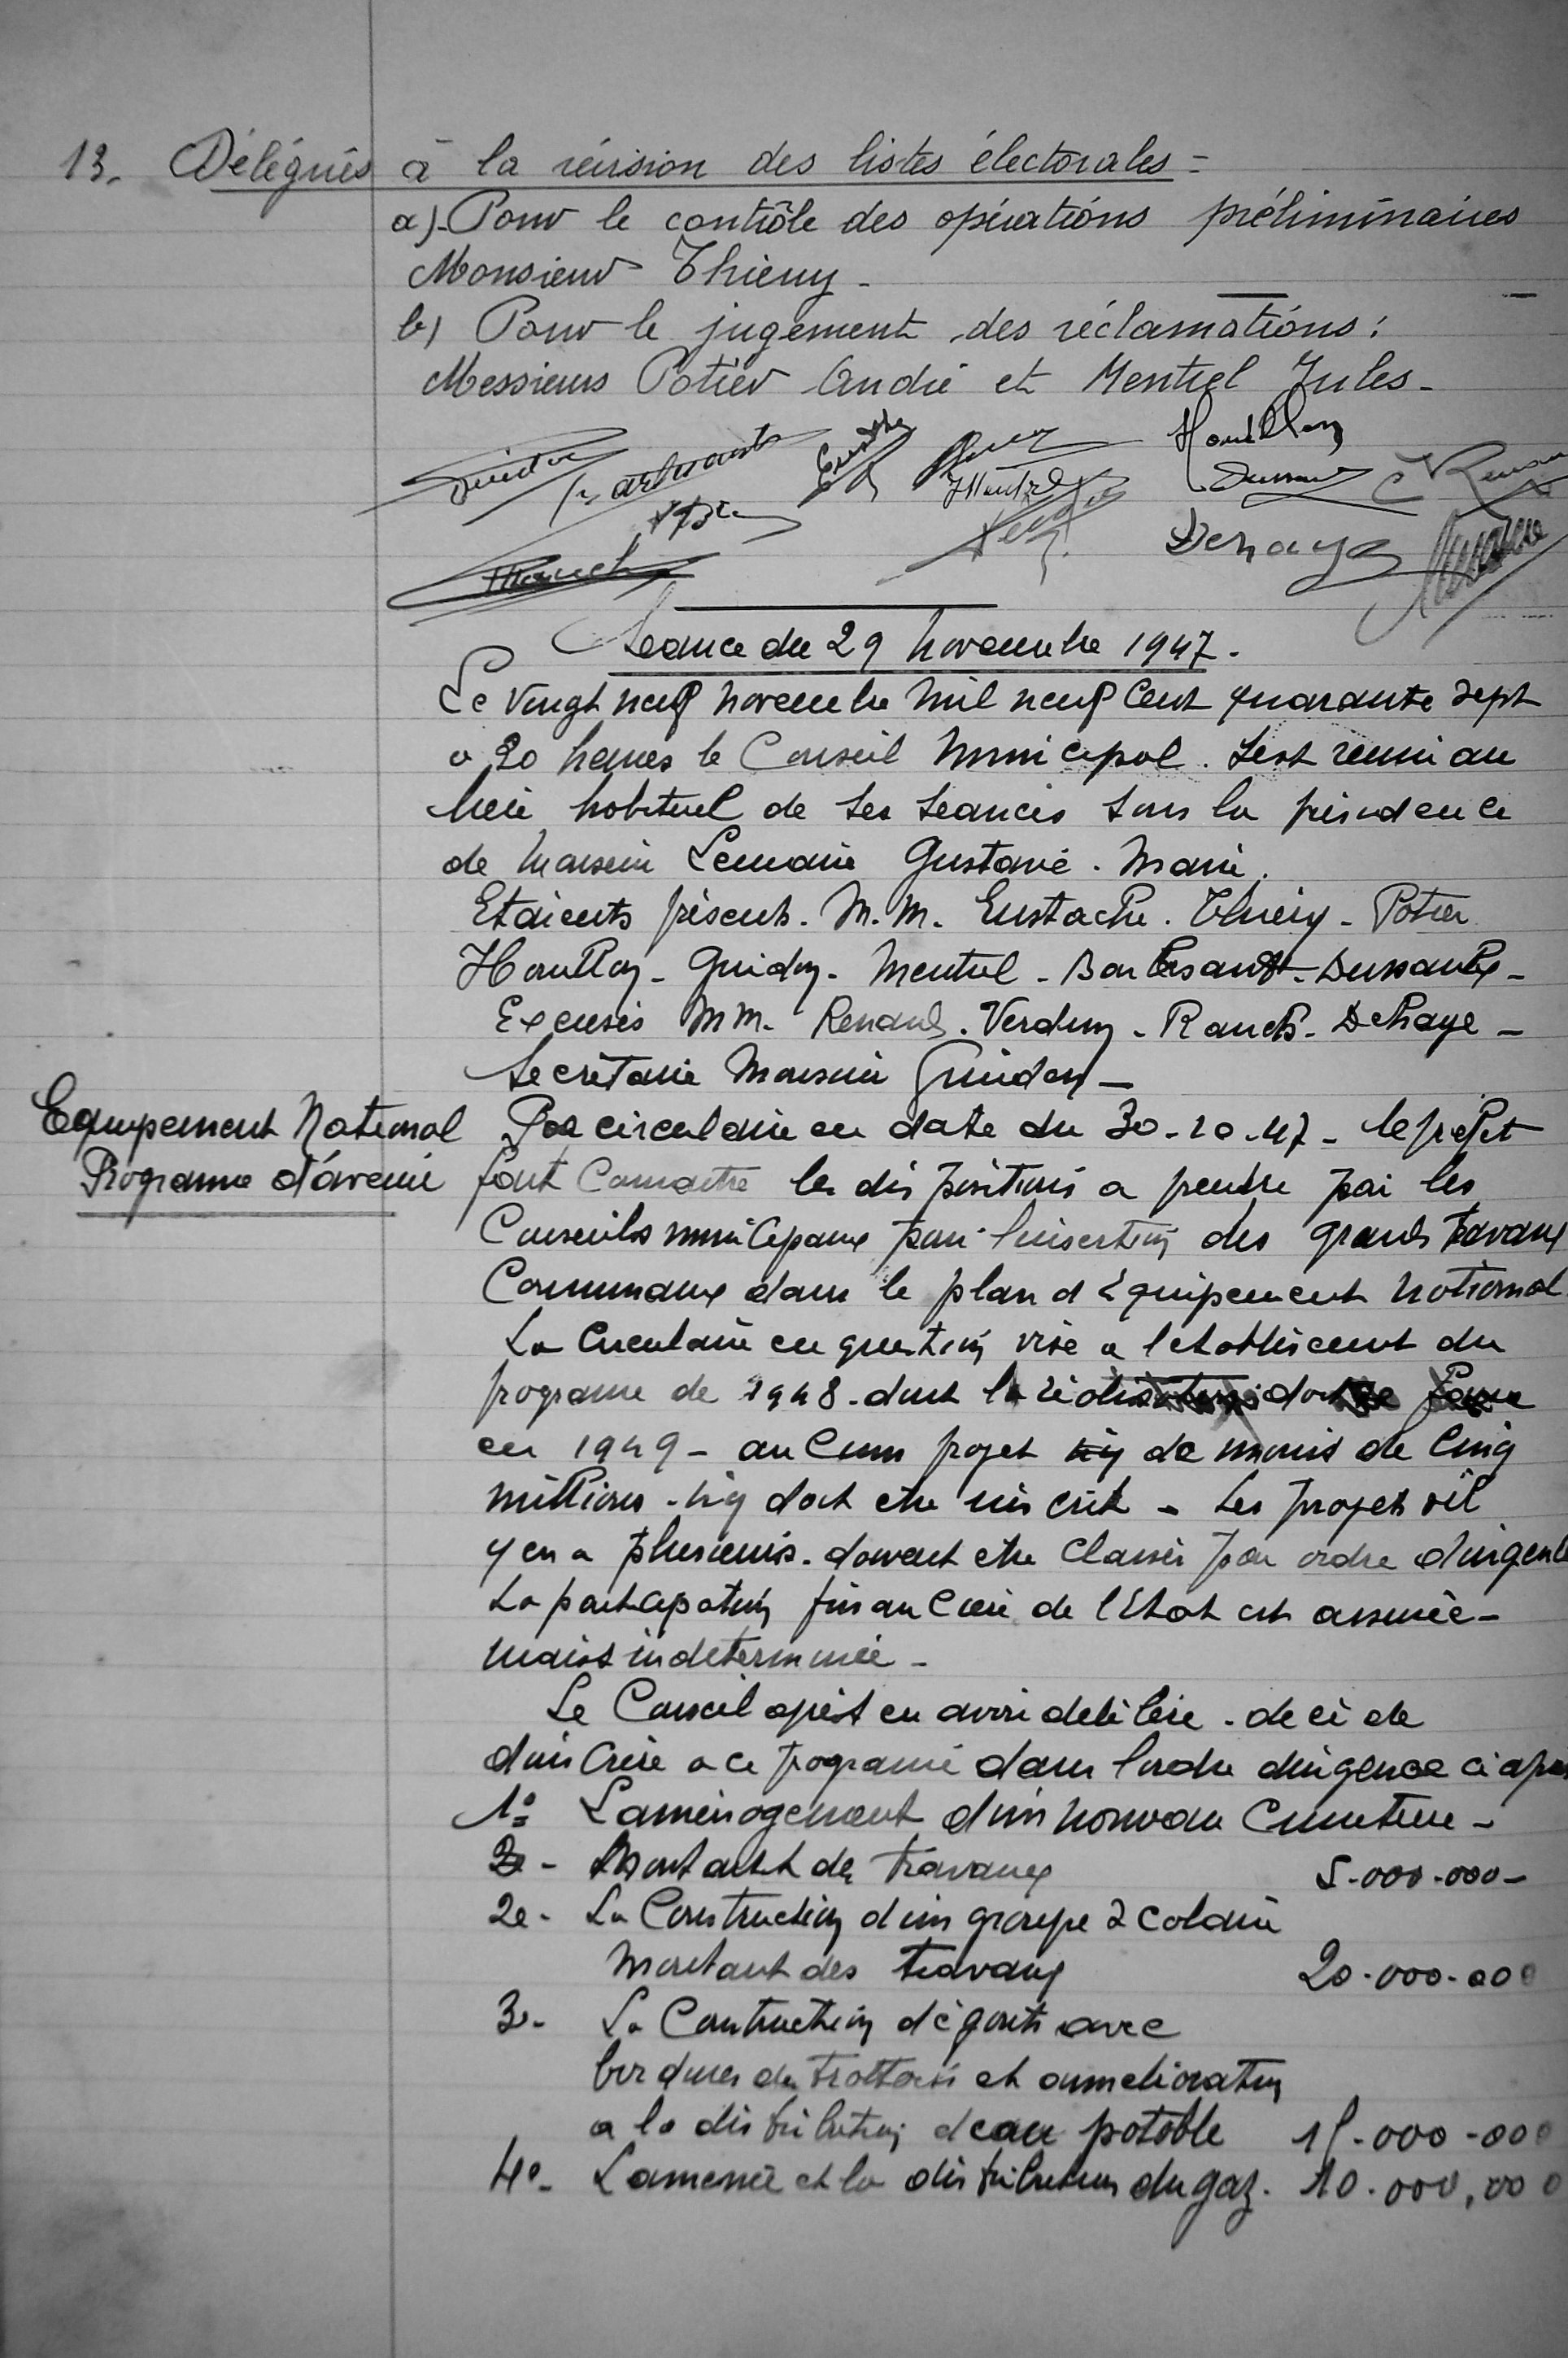 13. Délégués à la révision des listes électorales -
a). Pour le contrôle des opérations préliminaires
Monsieur Thiery -
b) Pour le jugement des réclamations :
Messieurs Potier André et Mentrel Jules -
Houillon
Dehaye
Séance du 29 Novembre 1947 -
Le Vingt neuf novembre mil neuf cent quarante sept
a 20 heures le Conseil Municipal s'est reuni au
lieu habituel de ses seances sous la présidence
de Monsieur Lemaire Gustave . Maire.
Etaients présents . M.M. Eustache . Thiery - Potier
Houillon - Guidon - Mentrel - Barbesant - Dussaulx -
Excusés MM. Renard . Verdun - Rauch - Dehaye -
Secrétaire Monsieur Guidon -
Equipement National
Programme d'avenir
Par circulaire en date du 30-10-47 - le préfet
fait connaitre les dispositions a prendre par les
Conseils municipaux pour l'insertion des grands travaux
Communaux dans le plan d'équipement national
La Circulaire en question vise a l'etablissement du
programe de 1948 - dont la réalisation
en 1949 - aucun projet de moins de Cinq
millions - n'y doit etre inscrit - Les projets s'il
y en a plusieurs - doivent etre classés par ordre d'urgence
La participation financière de l'Etat est assurée -
mais indeterminée -
Le Conseil après en avoir délibéré - décide
d'inscrire a ce programe dans l'ordre d'urgence ci après
1º L'aménagement d'un nouveau Cimetiere -
Montant des travaux 5-000-000-
2e- La Construction d'un groupe scolaire
Montant des travaux 20-000-000
3e- La Contruction d'égouts avec
bordures de trottoirs et ammelioration
a la distribution d'eau potable 15-000-000
4e- L'amenée et la distribution du gaz - 10.000,000